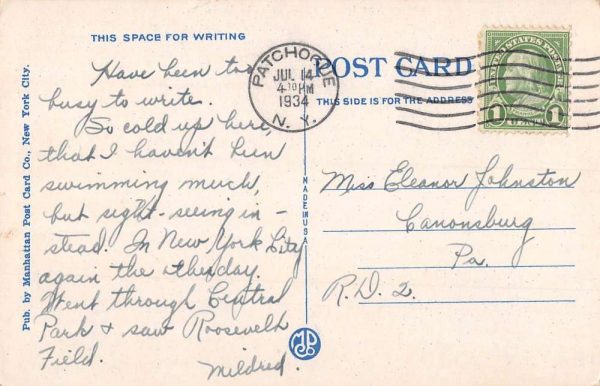 THIS SPACE FOR WRITING
Have been too
busy to write.
So cold up here,
that I haven't been
swimming much,
but sight-seeing in-
stead. In New York City
again the otherday.
Went through Central
Park & saw Roosevelt
Field.
Mildred.
Pub. by Manhattan Post Card Co., New York City.
MADE IN USA
PATCHOGUE
JUL 14
4 PM
1934
N. Y.
POST CARD
THIS SIDE IS FOR THE ADDRESS
UNITED STATES POSTAGE
1 1
Miss Eleanor Johnston
Canonsburg
Pa.
R.D. 2.